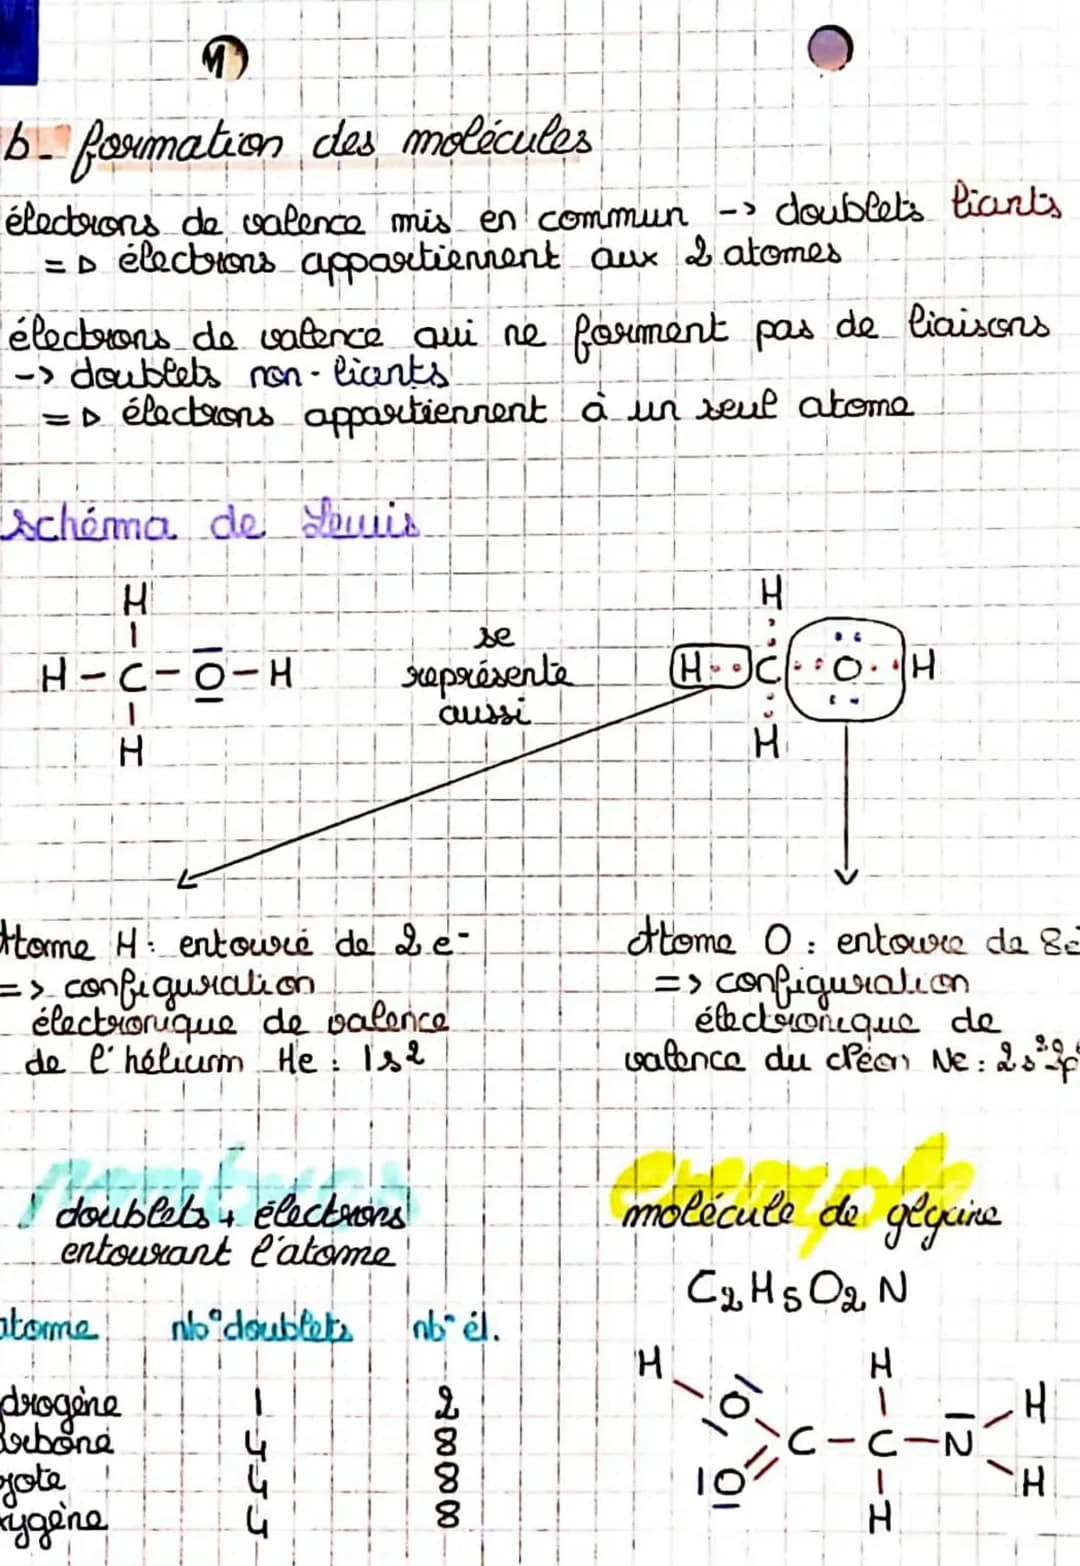 b- formation des molécules
électrons de valence mis en commun -> doublets liants
=▷ électrons appartiennent aux 2 atomes
électrons de valence qui ne forment pas de liaisons
-> doublets non-liants
=▷ électrons appartiennent à un seul atome
schéma de Lewis
H
H-C-O-H
H
se
représente
aussi
H
H··C··O··H
H
Atome H: entouré de 2e-
=> configuration
électronique de valence
de l'hélium He : 1s2
Atome O : entoure de 8e-
=> configuration
électronique de
valence du Néon Ne : 2s²2p
nombres
doublets + électrons
entourant l'atome
atome nb° doublets nb° él.
drogène 1 2
carbone 4 8
zote 4 8
xygène 4 8
exemple
molécule de glycine
C2H5O2N
H H
O H
C-C-N
O H
H